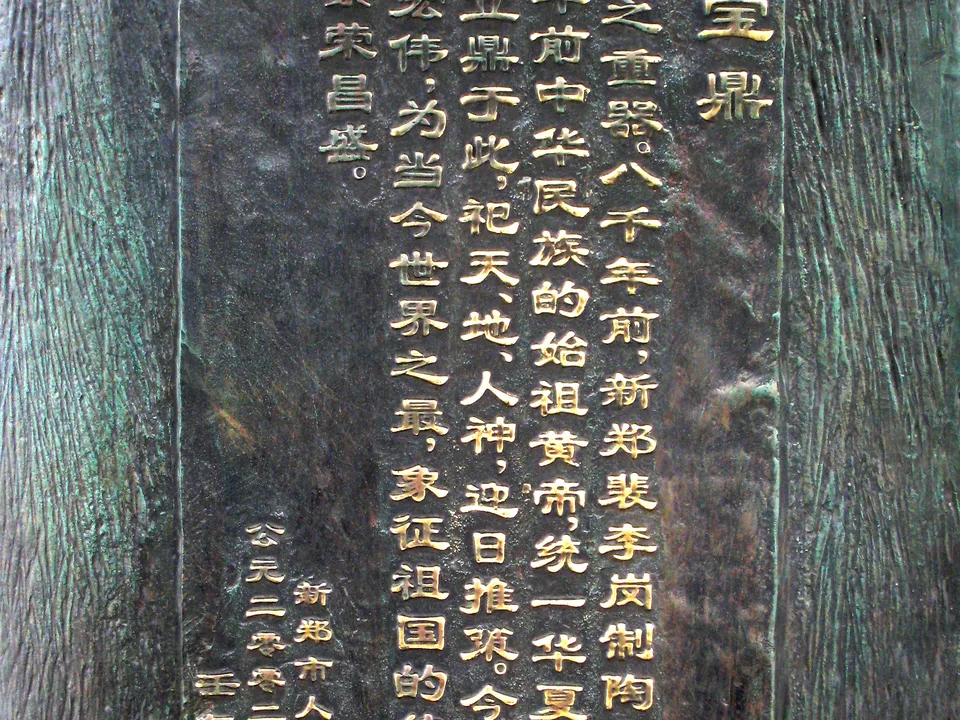 宝鼎
之重器。八千年前，新郑裴李岗制陶
年前中华民族的始祖黄帝，统一华夏
立鼎于此，祀天、地、人神，迎日推筴。今
宏伟，为当今世界之最，象征祖国的
荣昌盛。
新郑市人
公元二零零二
壬